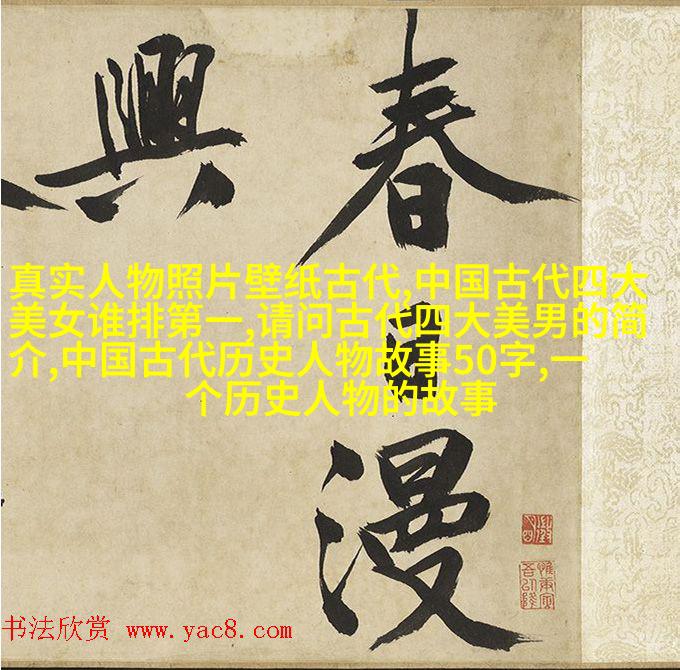 春日漫
興
真实人物照片壁纸古代,中国古代四大
美女谁排第一,请问古代四大美男的简
介,中国古代历史人物故事50字,一
个历史人物的故事
惟庚寅
吾以降
书法欣赏 www.yac8.com